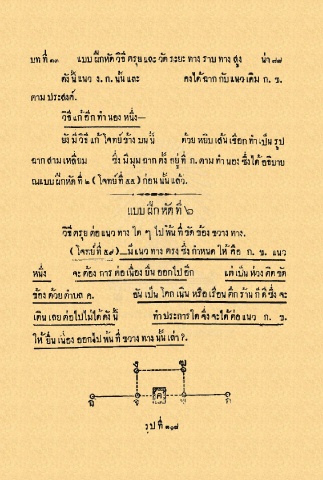 บท ที่ ๑๓ แบบ ฝึกหัด วิธี ครุย และ วัด ระยะ ทาง ราบ ทาง สูง น่า ๘๗
ดัง นี้ แนว ง. ก. นั้น และ คงได้ฉาก กับ แนว เดิม ก. ข.
ตาม ประสงค์.
วิธี แก้ อีก ทำนอง หนึ่ง—
ยัง มี วิธี แก้ โจทย์ ข้าง บน นี้ ด้วย หยิบ เส้น เชือก ทำ เป็น รูป
ฉาก สาม เหลี่ยม ซึ่ง มี มุม ฉาก ตั้ง อยู่ ที่ ก. ตาม ทำนอง ซึ่ง ได้ อธิบาย
ณแบบ ฝึก หัด ที่ ๒ ( โจทย์ ที่ ๕๕ ) ก่อน นั้น แล้ว.
แบบ ฝึก หัด ที่ ๖
วิธี ครุย ต่อ แนว ทาง ใด ๆ ไป ให้ พ้น ที่ ขัด ข้อง ขวาง ทาง.
(โจทย์ ที่ ๕๙) —มี แนว ทาง ตรง ซึ่ง กำหนด ให้ คือ ก. ข. แนว
หนึ่ง จะ ต้อง การ ต่อ เนื่อง ยื่น ออก ไป อีก แต่ เป็น ห่วง ติด ขัด
ข้อง ด้วย ตำบล ค. อัน เป็น โคก เนิน หรือ เรือน ตึก ร้าน ก็ ดี ซึ่ง จะ
เดิน เลย ต่อ ไป ไม่ ได้ ดัง นี้ ทำ ประการ ใด จึ่ง จะ ได้ ต่อ แนว ก. ข.
ให้ ยื่น เนื่อง ออก ไป พ้น ที่ ขวาง ทาง นั้น เล่า ?.
ค
ก
รูป ที่ ๑๑๗